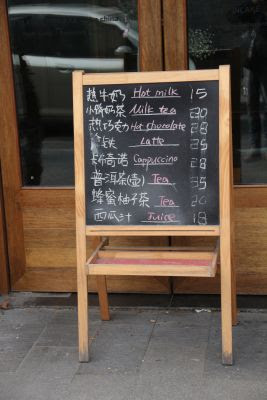 china
热牛奶 Hot milk 15
小锅奶茶 Milk tea 20
热巧克力 Hot chocolate 28
拿铁 Latte 25
卡布奇诺 Cappuccino 28
普洱茶(壶) Tea 35
蜂蜜柚子茶 Tea 20
西瓜汁 Juice 18